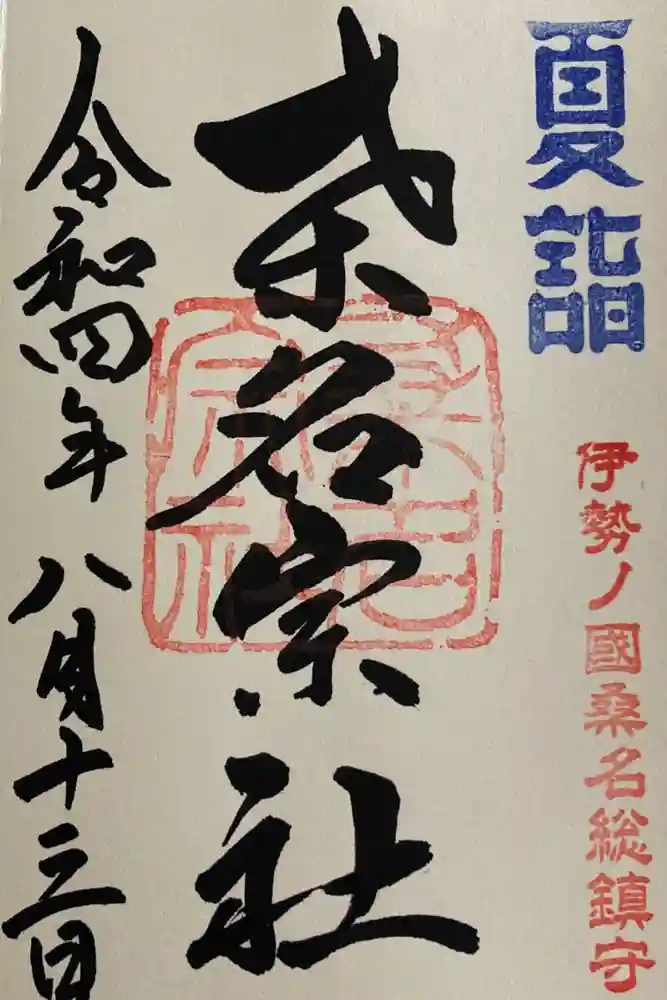 夏詣
伊勢ノ國桑名総鎮守
桑名宗社
令和四年 八月十三日